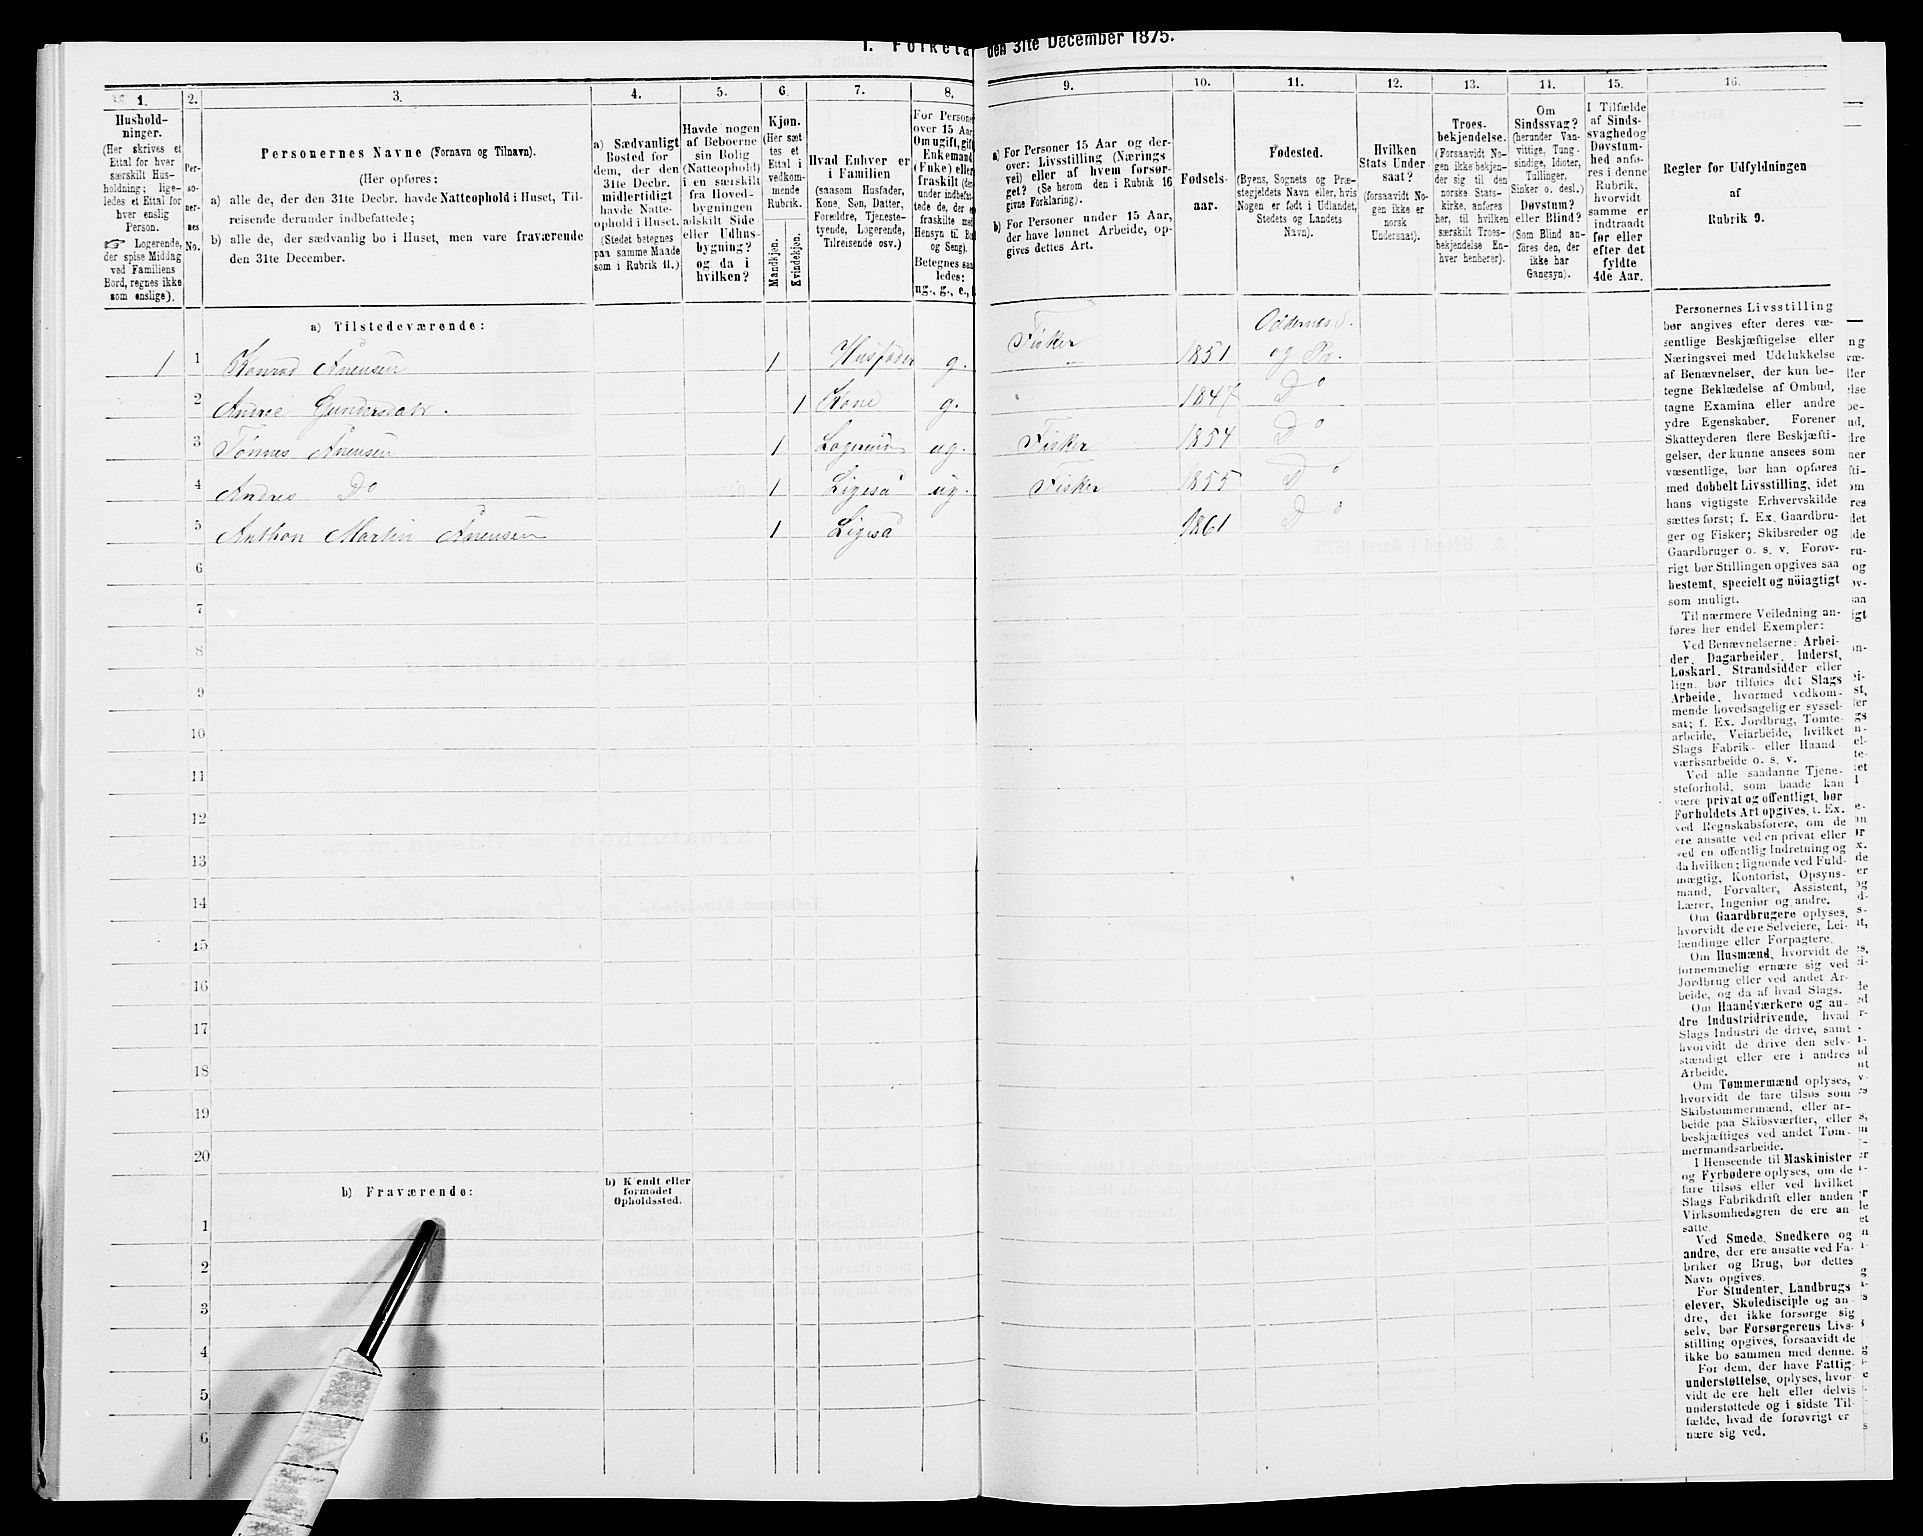 1. Folketæ den 31te December 1875.
1.
Hushold-
ninger.
(Her skrives et
Ettal for hver
særskilt Hus-
holdning; lige-
ledes et Ettal for
hver enslig
Person.
☞ Logerende,
der spise Middag
ved Familiens
Bord, regnes ikke
som enslige).
2.
Per-
so-
ner-
nes
No.
3.
Personernes Navne (Fornavn og Tilnavn).
(Her opføres:
a) alle de, der den 31te Decbr. havde Natteophold i Huset, Til-
reisende derunder indbefattede;
b) alle de, der sædvanlig bo i Huset, men vare fraværende
den 31te December.
4.
a) Sædvanligt
Bosted for
dem, der den
31te Decbr.
midlertidigt
havde Natte-
ophold i Huset.
(Stedet betegnes
paa samme Maade
som i Rubrik 11.)
5.
Havde nogen
af Beboerne
sin Bolig
(Natteophold)
i en særskilt
fra Hoved-
bygningen
adskilt Side
eller Udhus-
bygning?
og da i
hvilken?
6.
Kjøn.
(Her sæt
tes et
Ettal i
vedkom-
mende
Rubrik.
Mandkjøn.
Kvindekjøn.
7.
Hvad Enhver er
i Familien
(saasom Husfader,
Kone, Søn, Datter,
Forældre, Tjeneste-
tyende, Logerende,
Tilreisende osv.)
8.
For Persone
over 15 Aar
Om ugift, gift
Enkemand
(Enke) eller
fraskilt (de
under indbefat-
tede de, der e
fraskilte med
Hensyn til Bo
og Seng).
Betegnes saa
ledes:
ug., g., e., f.
9.
a) For Personer 15 Aar og der-
over: Livsstilling (Nærings
vei) eller af hvem forsør-
get? (Se herom den i Rubrik 16
givne Forklaring).
b) For Personer under 15 Aar,
der have lønnet Arbeide, op-
gives dettes Art.
10.
Fødsels-
aar.
11.
Fødested.
(Byens, Sognets og Præ-
stegjeldets Navn eller, hvis
Nogen er født i Udlandet,
Stedets og Landets
Navn).
12.
Hvilken
Stats Under
saat?
(forsaavidt No-
gen ikke er
norsk
Undersaat).
13.
Troes-
bekjendelse.
(Forsaavidt No-
gen ikke bekjen-
der sig til den
norske Stats-
kirke, anføres
her, til hvilken
særskilt Troes-
bekjendelse En-
hver henhører).
14.
Om
Sindssvag?
(herunder Van-
vittige, Tung-
sindige, Idioter,
Tullinger,
Sinker o. desl.)
Døvstum?
eller Blind?
(Som Blind an-
føres den, der
ikke har
Gangsyn).
15.
I Tilfælde
af Sinds-
svaghed og
Døvstum-
hed anfø-
res i denne
Rubrik,
hvorvidt
samme er
indtraadt
før eller
efter det
fyldte
4de Aar.
16.
Regler for Udfyldningen
af
Rubrik 9.
a) Tilstedeværende:
1 1 Konrad Anensen 1 Husfader g. Fisker 1851 Oddernes S.
og Pr.
2 Andrie Gundersdatr. 1 Kone g. 1847 Do
3 Tönnes Anensen 1 Logerend ug. Fisker 1854 Do
4 Andres Do 1 Ligeså ug. Fisker 1855 Do
5 Anthon Martin Anensen 1 Ligeså 1861 Do
6
7
8
9
10
11
12
13
14
15
16
17
18
19
20
b) Fraværende:
b) Kjendt eller
formodet
Opholdssted.
1
2
3
4
5
6
Personernes Livsstilling
bør angives efter deres væ-
sentlige Beskjæftigelse eller
Næringsvei med Udelukkelse
af Benævnelser, der kun be-
tegne Beklædelse af Ombud,
tagne Examina eller andre
ydre Egenskaber. Forener
Skatteyderen flere Beskjæfti-
gelser, der kunne ansees som
væsentlige, bør han opføres
med dobbelt Livsstilling, idet
hans vigtigste Erhvervskilde
sættes først; f. Ex. Gaardbru-
ger og Fisker; Skibsreder og
Gaardbruger o. s. v. Forøv-
rigt bør Stillingen opgives saa
bestemt, specielt og nöiagtigt
som muligt.
Til nærmere Veiledning an-
føres her endel Exempler:
Ved Benævnelserne: Arbei-
der, Dagarbeider, Inderst,
Løskarl, Strandsidder eller
lign. bør tilføies det Slags
Arbeide, hvormed vedkom-
mende hovedsagelig er syssel-
sat; f. Ex. Jordbrug, Tomte-
arbeide, Veiarbeide, hvilket
Slags Fabrik- eller Haand-
værksarbeide o. s. v.
Ved alle saadanne Tjene-
steforhold, som baade kan
være privat og offentligt, bør
Forholdets Art opgives, f. Ex.
ved Regnskabsførere, om de
ere ansatte ved en privat eller
ved en offentlig Indretning og
da hvilken; lignende ved Fuld-
mægtig, Kontorist, Opsyns-
mand, Forvalter, Assistent,
Lærer, Ingeniør og andre.
Om Gaardbrugere oplyses,
hvorvidt de ere Selveiere, Lei-
lændinge eller Forpagtere.
Om Husmænd, hvorvidt de
fornemmelig ernære sig ved
Jordbrug eller ved andet Ar-
beide, og da af hvad Slags.
Om Haandværkere og an-
dre Industridrivende, hvad
Slags Industri de drive, samt
hvorvidt de drive den selv-
stændigt eller ere i andres
Arbeide.
Om Tømmermænd oplyses,
hvorvidt de fare tilsøs som
Skibstømmermænd, eller ar-
beide paa Skibsværfter, eller
beskjæftiges ved andet Tøm-
mermandsarbeide.
I Henseende til Maskinister
og Fyrbødere oplyses, om de
fare tilsøs eller ved hvilket
Slags Fabrikdrift eller anden
Virksomhedsgren de ere an-
satte.
Ved Smede, Snedkere og
andre, der ere ansatte ved Fa-
briker og Brug, bør dettes
Navn opgives.
For Studenter, Landbrugs
elever, Skoledisciple og an-
dre, der ikke forsørge sig
selv, bør Forsørgerens Livs-
stilling opgives, forsaavidt de
ikke bo sammen med denne.
For dem, der have Fattig-
understøttelse, oplyses, hvor-
vidt de ere helt eller delvis
understøttede og i sidste Til-
fælde, hvad de forøvrigt er
nære sig ved.